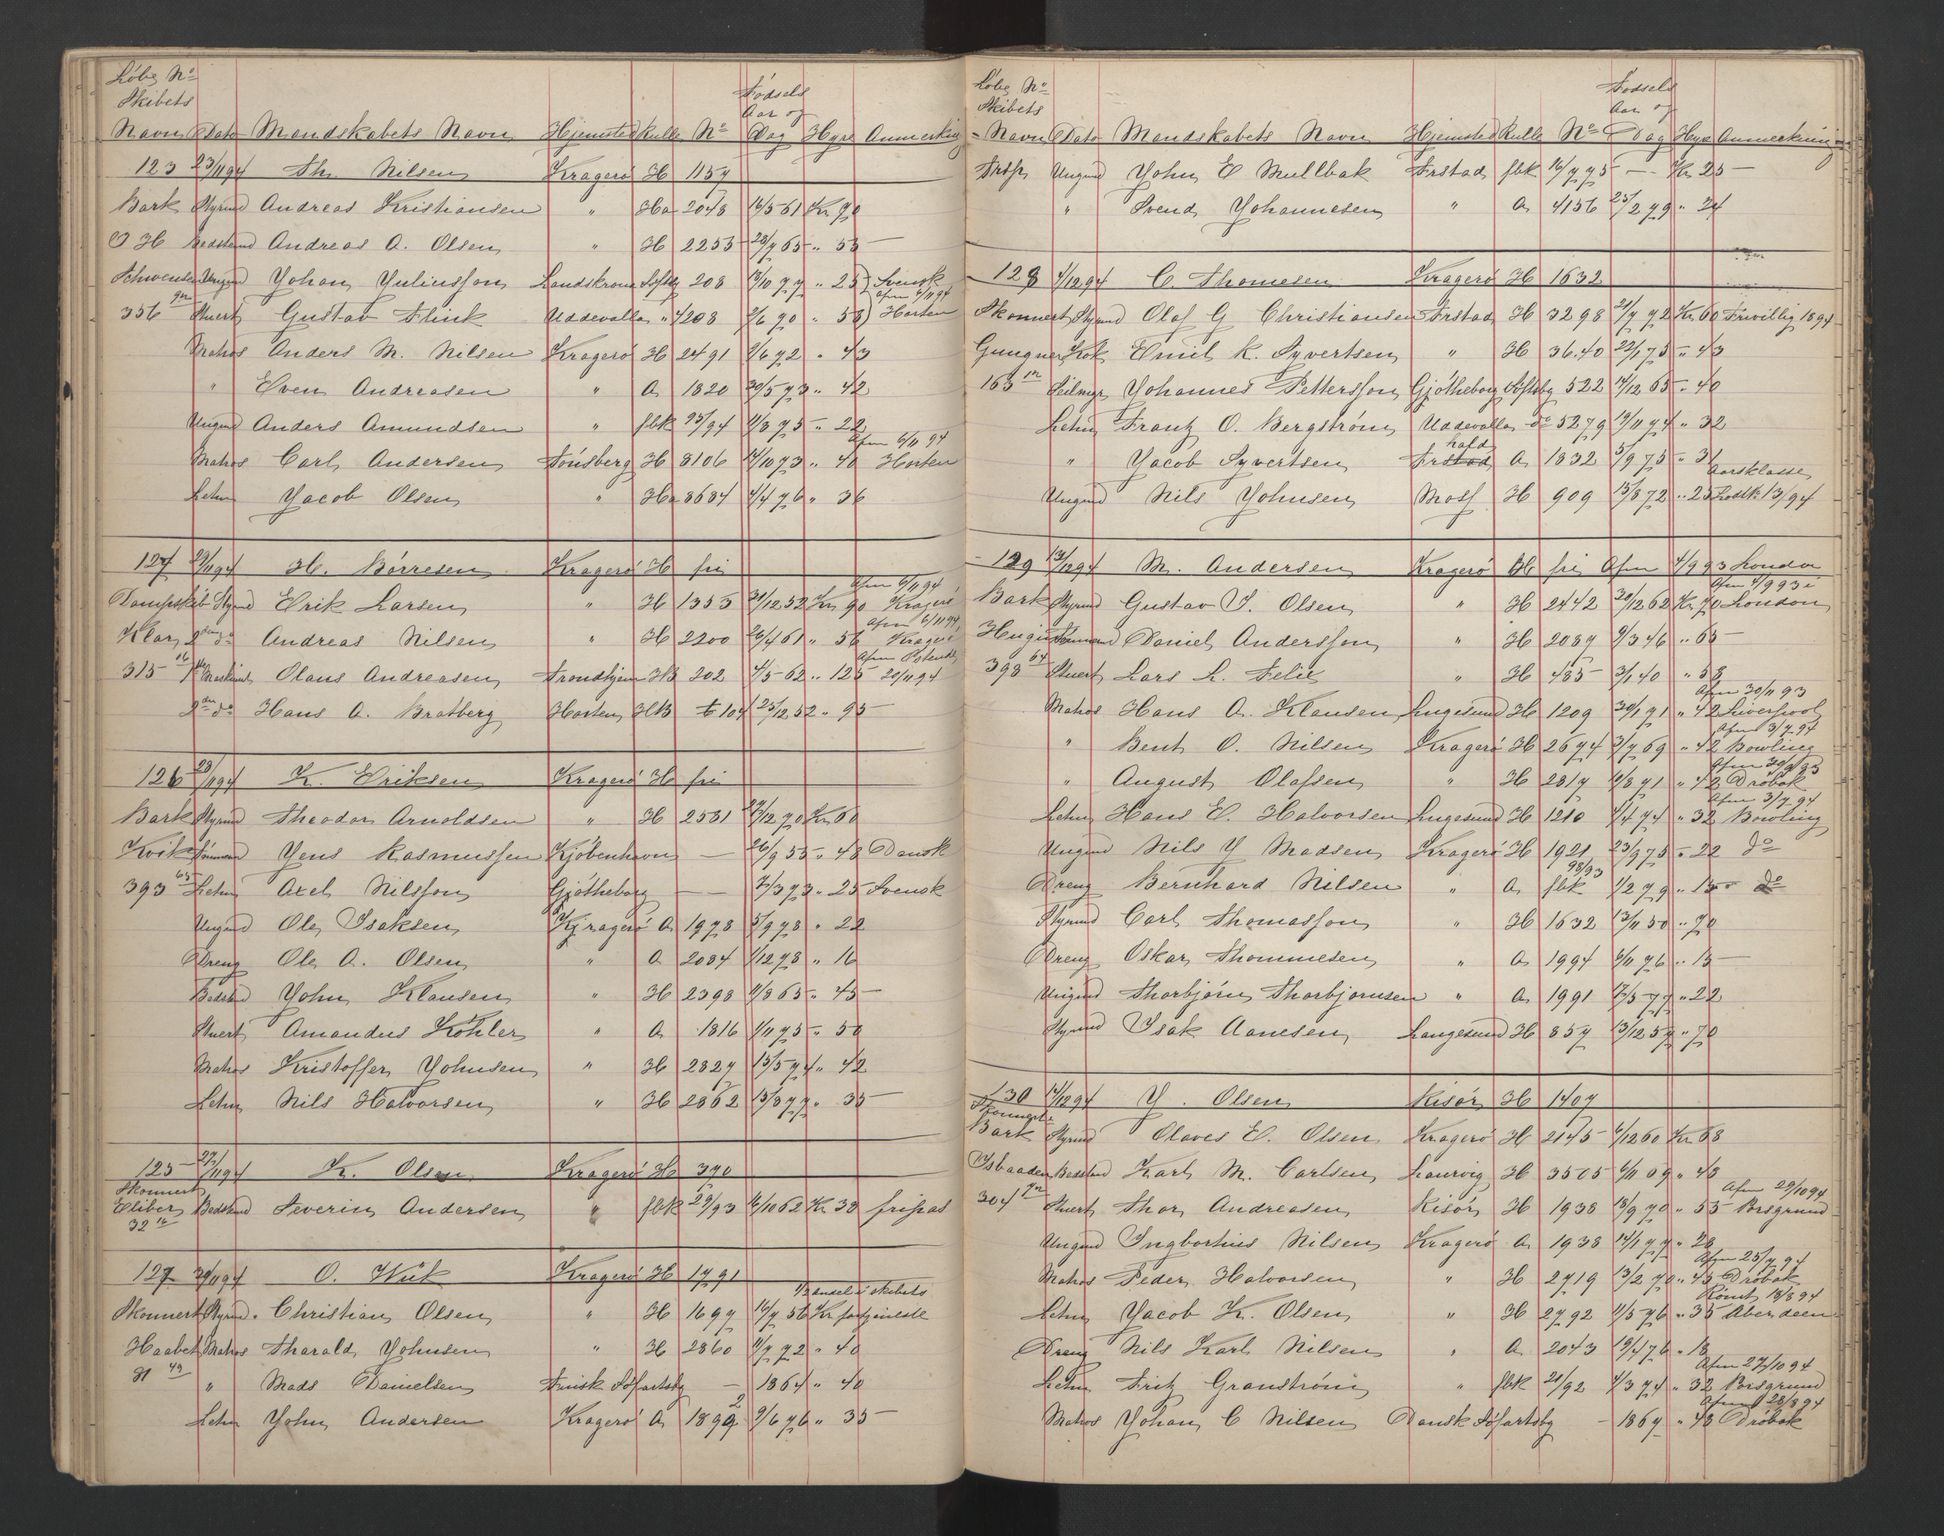 Löbe No
Skibets
Födsels
Aar og
Navn Dato Mandskabets Navn Hjemsted Rulle No Dag Hyre Anmerkning
123 23/11 94 Th. Nilsen Kragerö H 1157
Bark Styrmd Andreas Kristiansen " Ha 2048 16/5 61 Kr 70
O H Bedstmd Andreas A. Olsen " H 2253 28/7 65 " 53
Schwensen Ungmd Johan Juliusson Landskrona Söftsby 208 13/10 77 " 25 Svensk
356 Stuert Gustav Flink Uddevalla " 4208 2/6 70 " 58 Afm 6/11 94 Horten
Matros Anders M. Nilsen Kragerö H 2491 9/6 72 " 43
" Even Andreasen " A 1820 30/5 73 " 42
Ungmd Anders Amundsen " fbk 25/94 11/8 75 " 22
Matros Carl Andersen Tönsberg H 8106 14/10 73 " 40 Afm 6/11 94 Horten
Letm Jacob Olsen " Ha 8684 4/4 76 " 36
124 29/11 94 H. Börresen Kragerö H fri
Dampskib Styrmd Erik Larsen " H 1353 31/12 52 Kr 90 Afm 6/11 94 Kragerö
Klar 2den do Andreas Nilsen " H 2200 26/4 61 " 56 Afm 6/11 94 Kragerö
315 Maskinist Olaus Andreasen Trondhjem HB 202 4/5 62 " 125 20/11 94
2den do Hans A. Bratberg Horten HB t 104 25/12 52 " 95
126 28/11 94 K. Eriksen Kragerö H fri
Bark Styrmd Theodor Arnoldsen " H 2531 27/12 70 Kr 60
Kvik Tömmermd Jens Rasmussen Kjöbenhavn — 26/9 55 " 48 Dansk
393 Letm Axel Nilsson Gjötheborg — 7/3 73 " 25 Svensk
Ungmd Ole Isaksen Kragerö A 1978 5/9 78 " 22
Dreng Ole A. Olsen " A 2034 1/12 78 " 16
Bedstmd John Klausen " H 2398 11/8 65 " 45
Stuert Amandus Köhler " A 1816 1/11 75 " 50
Matros Kristoffer Johnsen " H 2827 15/5 74 " 42
Letm Nils Halvorsen " H 2862 13/8 77 " 35
125 27/11 94 K. Olsen Kragerö H 390
Skonnert
Eliber Bedstmd Severin Andersen " fbk 29/93 16/10 62 Kr 38 fripas
32
127 30/11 94 O. Wiik Kragerö H 1791
Skonnert Styrmd Christian Olsen " H 1697 16/7 56 Kr 1/2 andel i skibets fortjeneste
Haabet Matros Tharald Johnsen " H 2860 11/7 72 " 40
91 49 " Mads Danielsen Finsk Söfartsby — 1864 " 40
Letm John Andersen Kragerö A 1899 9/6 76 " 35
Löbe No
Skibets
Födsels
Aar og
Navn Dato Mandskabets Navn Hjemsted Rulle No Dag Hyre Anmerkning
Trsp Ungmd John E Mullbak Trstad fbk 16/7 75 — Kr 25
" Svend Johannesen " A 4156 25/2 79 " 24
128 1/12 94 C. Thomesen Kragerö H 1632
Skonnert Styrmd Olaf G Christiansen Trstad H 3298 21/7 72 Kr 60 Frivillig 1894
Gungner Kok Emil K. Syvertsen " H 3640 22/1 75 " 43
163 Seilmgr Johannes Pettersson Gjötheborg Söftsby 522 14/12 65 " 40
Letm Frantz O. Bergström Uddevalla do 5279 19/11 74 " 32
" Jacob Syvertsen Trstad hald A 1832 5/9 75 " 31
Ungmd Nils Johnsen Moss H 909 15/8 72 " 25 Aarsklasse 13/94
129 13/12 94 M. Andersen Kragerö H fri Afm 4/9 93 London
Bark Styrmd Gustav J. Olsen " H 2442 30/12 62 Kr 70 Afm 4/9 93 i London
Hugin Tömmermd Daniel Andersson " H 2087 9/3 46 " 65
398 64 Stuert Lars L. Felix " H 485 3/1 40 " 58
Matros Hans A. Klausen Langesund H 1209 30/1 71 " 42 Afm 30/11 93 Liverpool
" Bent O. Nilsen Kragerö H 2674 3/7 69 " 42 Afm 3/7 94 Bowling
" August Olafsen " H 2817 10/8 71 " 42 Afm 30/8 93 Dröbak
Letm Hans E. Halvorsen Langesund H 1210 1/4 74 " 32 Afm 3/7 94 Bowling
Ungmd Nils J Madsen Kragerö H 1921 23/9 75 " 22 do
Dreng Bernhard Nilsen " A fbk 98/93 1/2 79 " 15 do
Styrmd Carl Thomasson " H 1632 13/11 50 " 70
Dreng Oskar Thommesen " A 1994 6/11 76 " 15
Ungmd Thorbjörn Thorbjornsen " A 1991 17/5 77 " 22
Styrmd Isak Aanesen Langesund H 857 13/12 57 " 70
130 14/12 94 J. Olsen Risör H 1407
Skonnert
Bark Styrmd Olaves E. Olsen Kragerö H 2145 6/12 60 Kr 68
Isbaaden Bedstmd Karl M. Carlsen Laurvig H 3505 6/11 69 " 48
304 Stuert Thor Andreasen Risör H 1938 18/9 70 " 55 Afm 29/10 94 Porsgrund
Ungmd Ingbortius Nilsen Kragerö A 1938 14/1 77 " 28
Matros Peder Halvorsen " H 2719 13/2 70 " 45 Afm 25/7 94 Dröbak
Letm Jacob K. Olsen " H 2792 11/5 76 " 35 Römt 18/8 94 Aberdeen
Dreng Nils Karl Nilsen " A 2043 19/4 76 " 18
Letm Fritz Granström " fbk 21/92 4/3 74 " 32 Afm 27/10 94 Porsgrund
Matros Johan C Nilsen Dansk Söfartsby — 1867 " 48 Afm 28/8 94 Dröbak